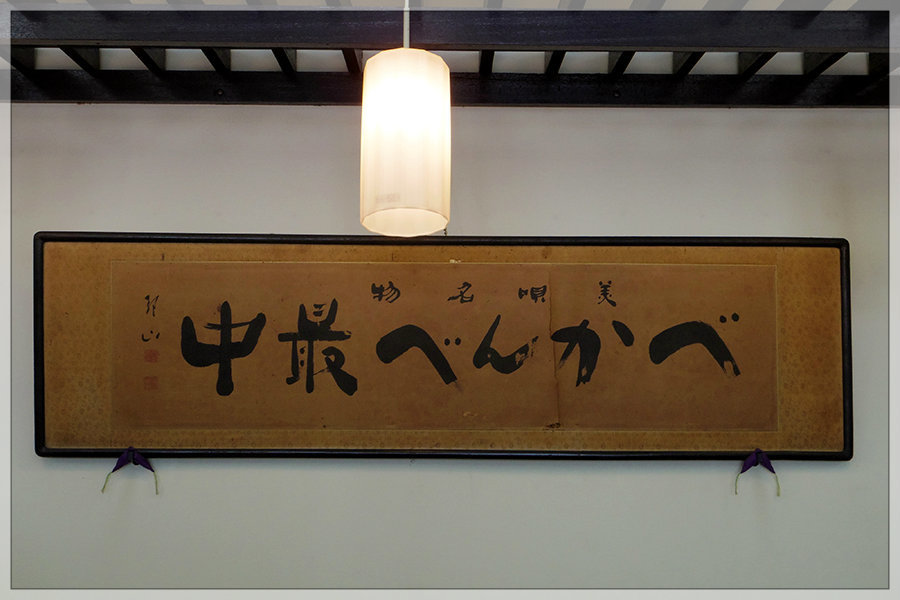 美唄名物
べかんべ最中